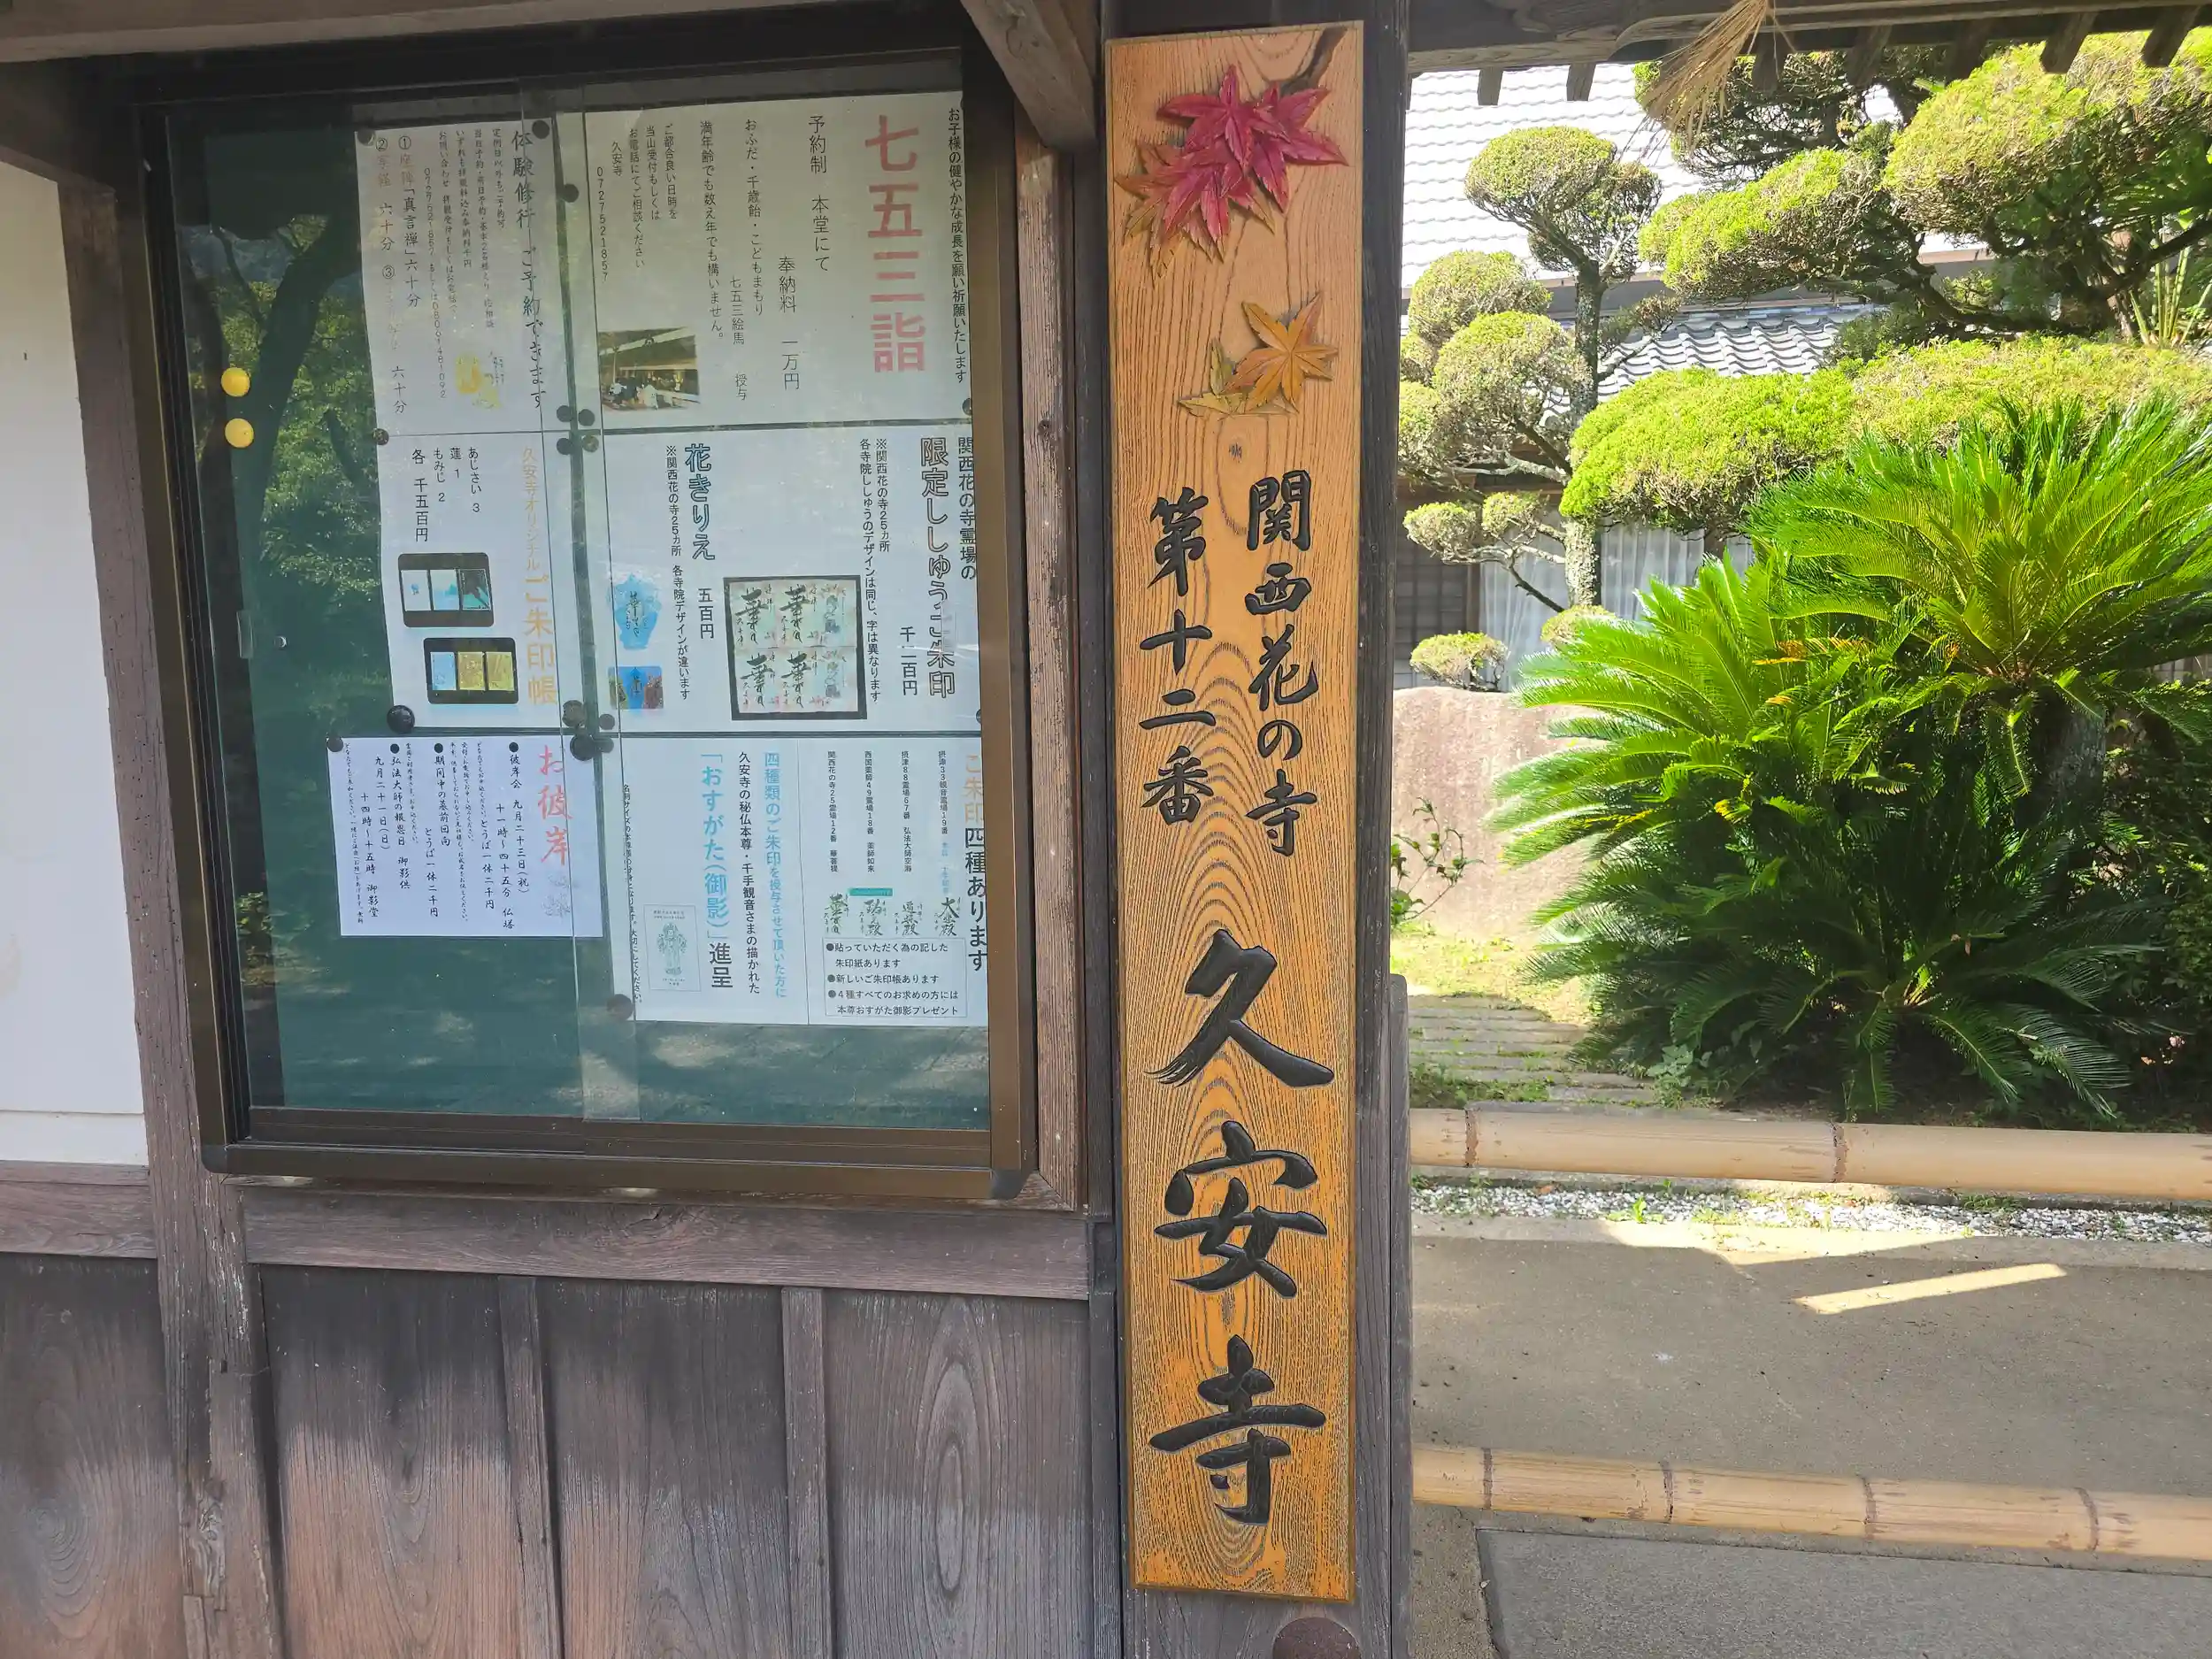 関西花の寺
第十二番
久安寺
お子様の健やかな成長を願い祈願いたします
七五三詣
予約制 本堂にて
奉納料 一万円
おふだ・千歳飴・こどもまもり
七五三絵馬 授与
満年齢でも数え年でも構いません。
ご都合良い日時を
当山受付もしくは
お電話にてご相談ください
久安寺
0727521857
体験修行 ご予約できます
①座禅「真言禅」六十分
六十分 ③
六十分
関西花の寺霊場の
限定ししゅうご朱印
千二百円
※関西花の寺25ヵ所
各寺院ししゅうのデザインは同じ、字は異なります
花きりえ 五百円
※関西花の寺25ヵ所 各寺院デザインが違います
久安寺オリジナルご朱印帳
あじさい 3
蓮 1
もみじ 2
各 千五百円
ご朱印四種あります
摂津33観音霊場19番
摂津88霊場67番 弘法大師空海
西国薬師49霊場18番 薬師如来
関西花の寺25霊場12番 華菩提
●貼っていただく為の記した
朱印紙あります
●新しいご朱印帳あります
●4種すべてのお求めの方には
本尊おすがた御影プレゼント
四種類のご朱印を授与させて頂いた方に
久安寺の秘仏本尊・千手観音さまの描かれた
「おすがた(御影)」進呈
お彼岸
●彼岸会 九月二十三日(祝)
十一時〜四十五分 仏塔
とうば一体二千円
●期間中の墓前回向
とうば一体二千円
●弘法大師の報恩日 御影供
九月二十一日(日)
十四時〜十五時 御影堂